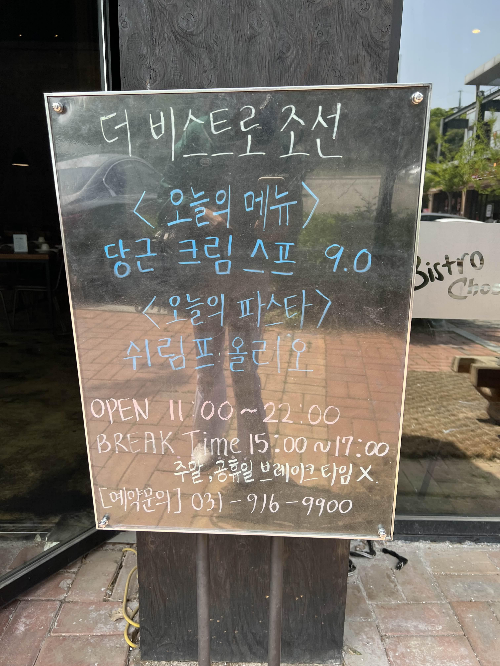 더 비스트로 조선
<오늘의 메뉴>
당근 크림 스프 9.0
<오늘의 파스타>
쉬림프 올리오
OPEN 11:00~22:00
BREAK Time 15:00~17:00
주말, 공휴일 브레이크 타임 X.
[예약문의] 031-916-9900
Bistro
Chos